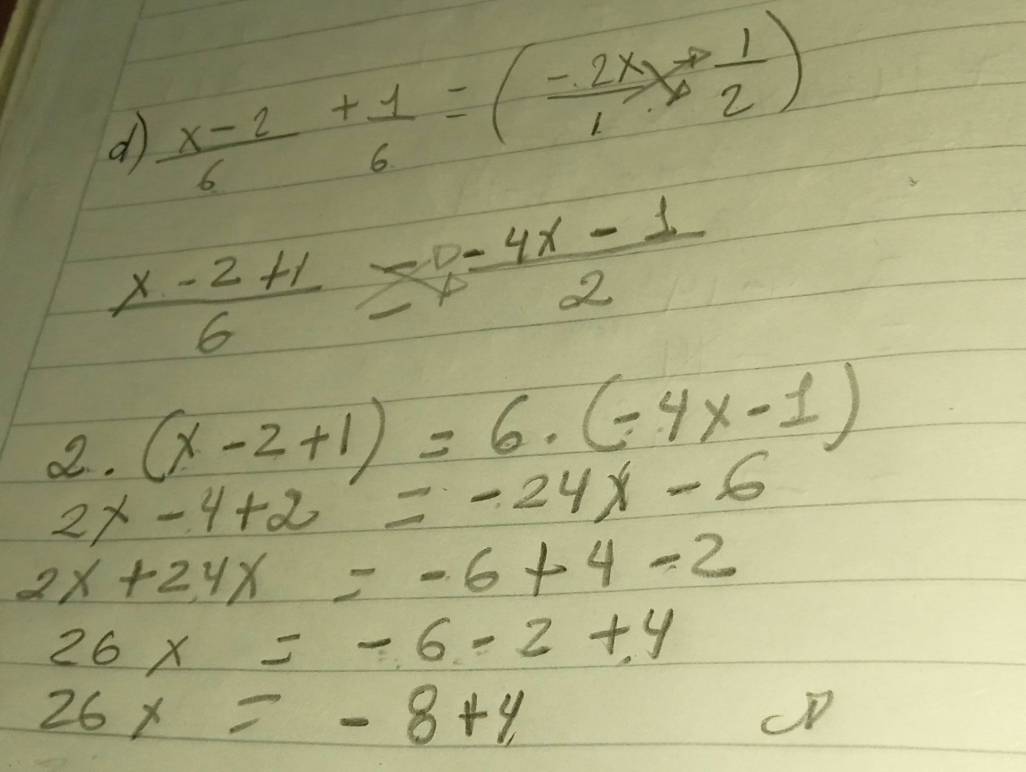 d) (x-2)/6 + 1/6 = (-2x/1 - 1/2)
(x-2+1)/6 = (-4x-1)/2
2.(x-2+1) = 6.(-4x-1)
2x-4+2 = -24x-6
2x+24x = -6+4-2
26x = -6-2+4
26x = -8+4